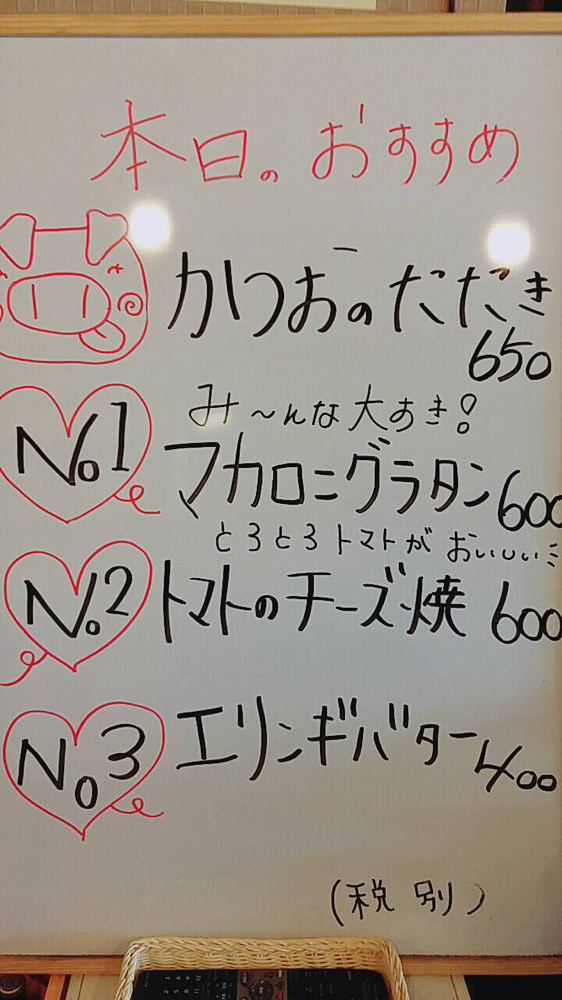 本日のおすすめ
かつおのたたき
650
み〜んな大すき!
No1 マカロニグラタン 600
とろとろトマトがおいしい
No2 トマトのチーズ焼 600
No3 エリンギバター 400
(税別)